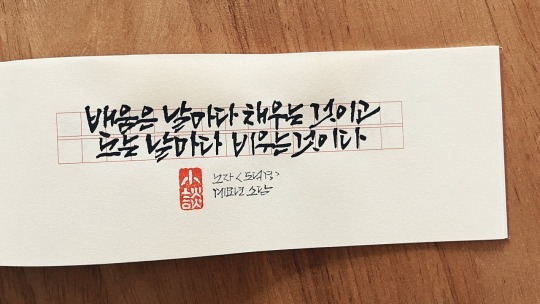 배움은 날마다 채우는 것이고
도는 날마다 비우는 것이다
小談
노자 <도덕경>
계묘년 소담